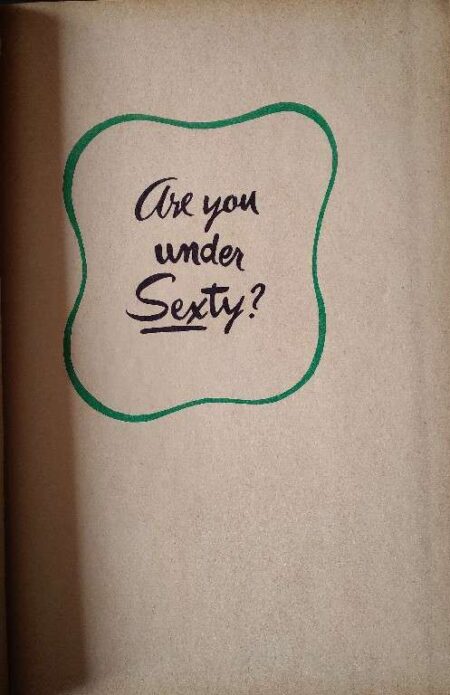 Are you
under
Sexty?